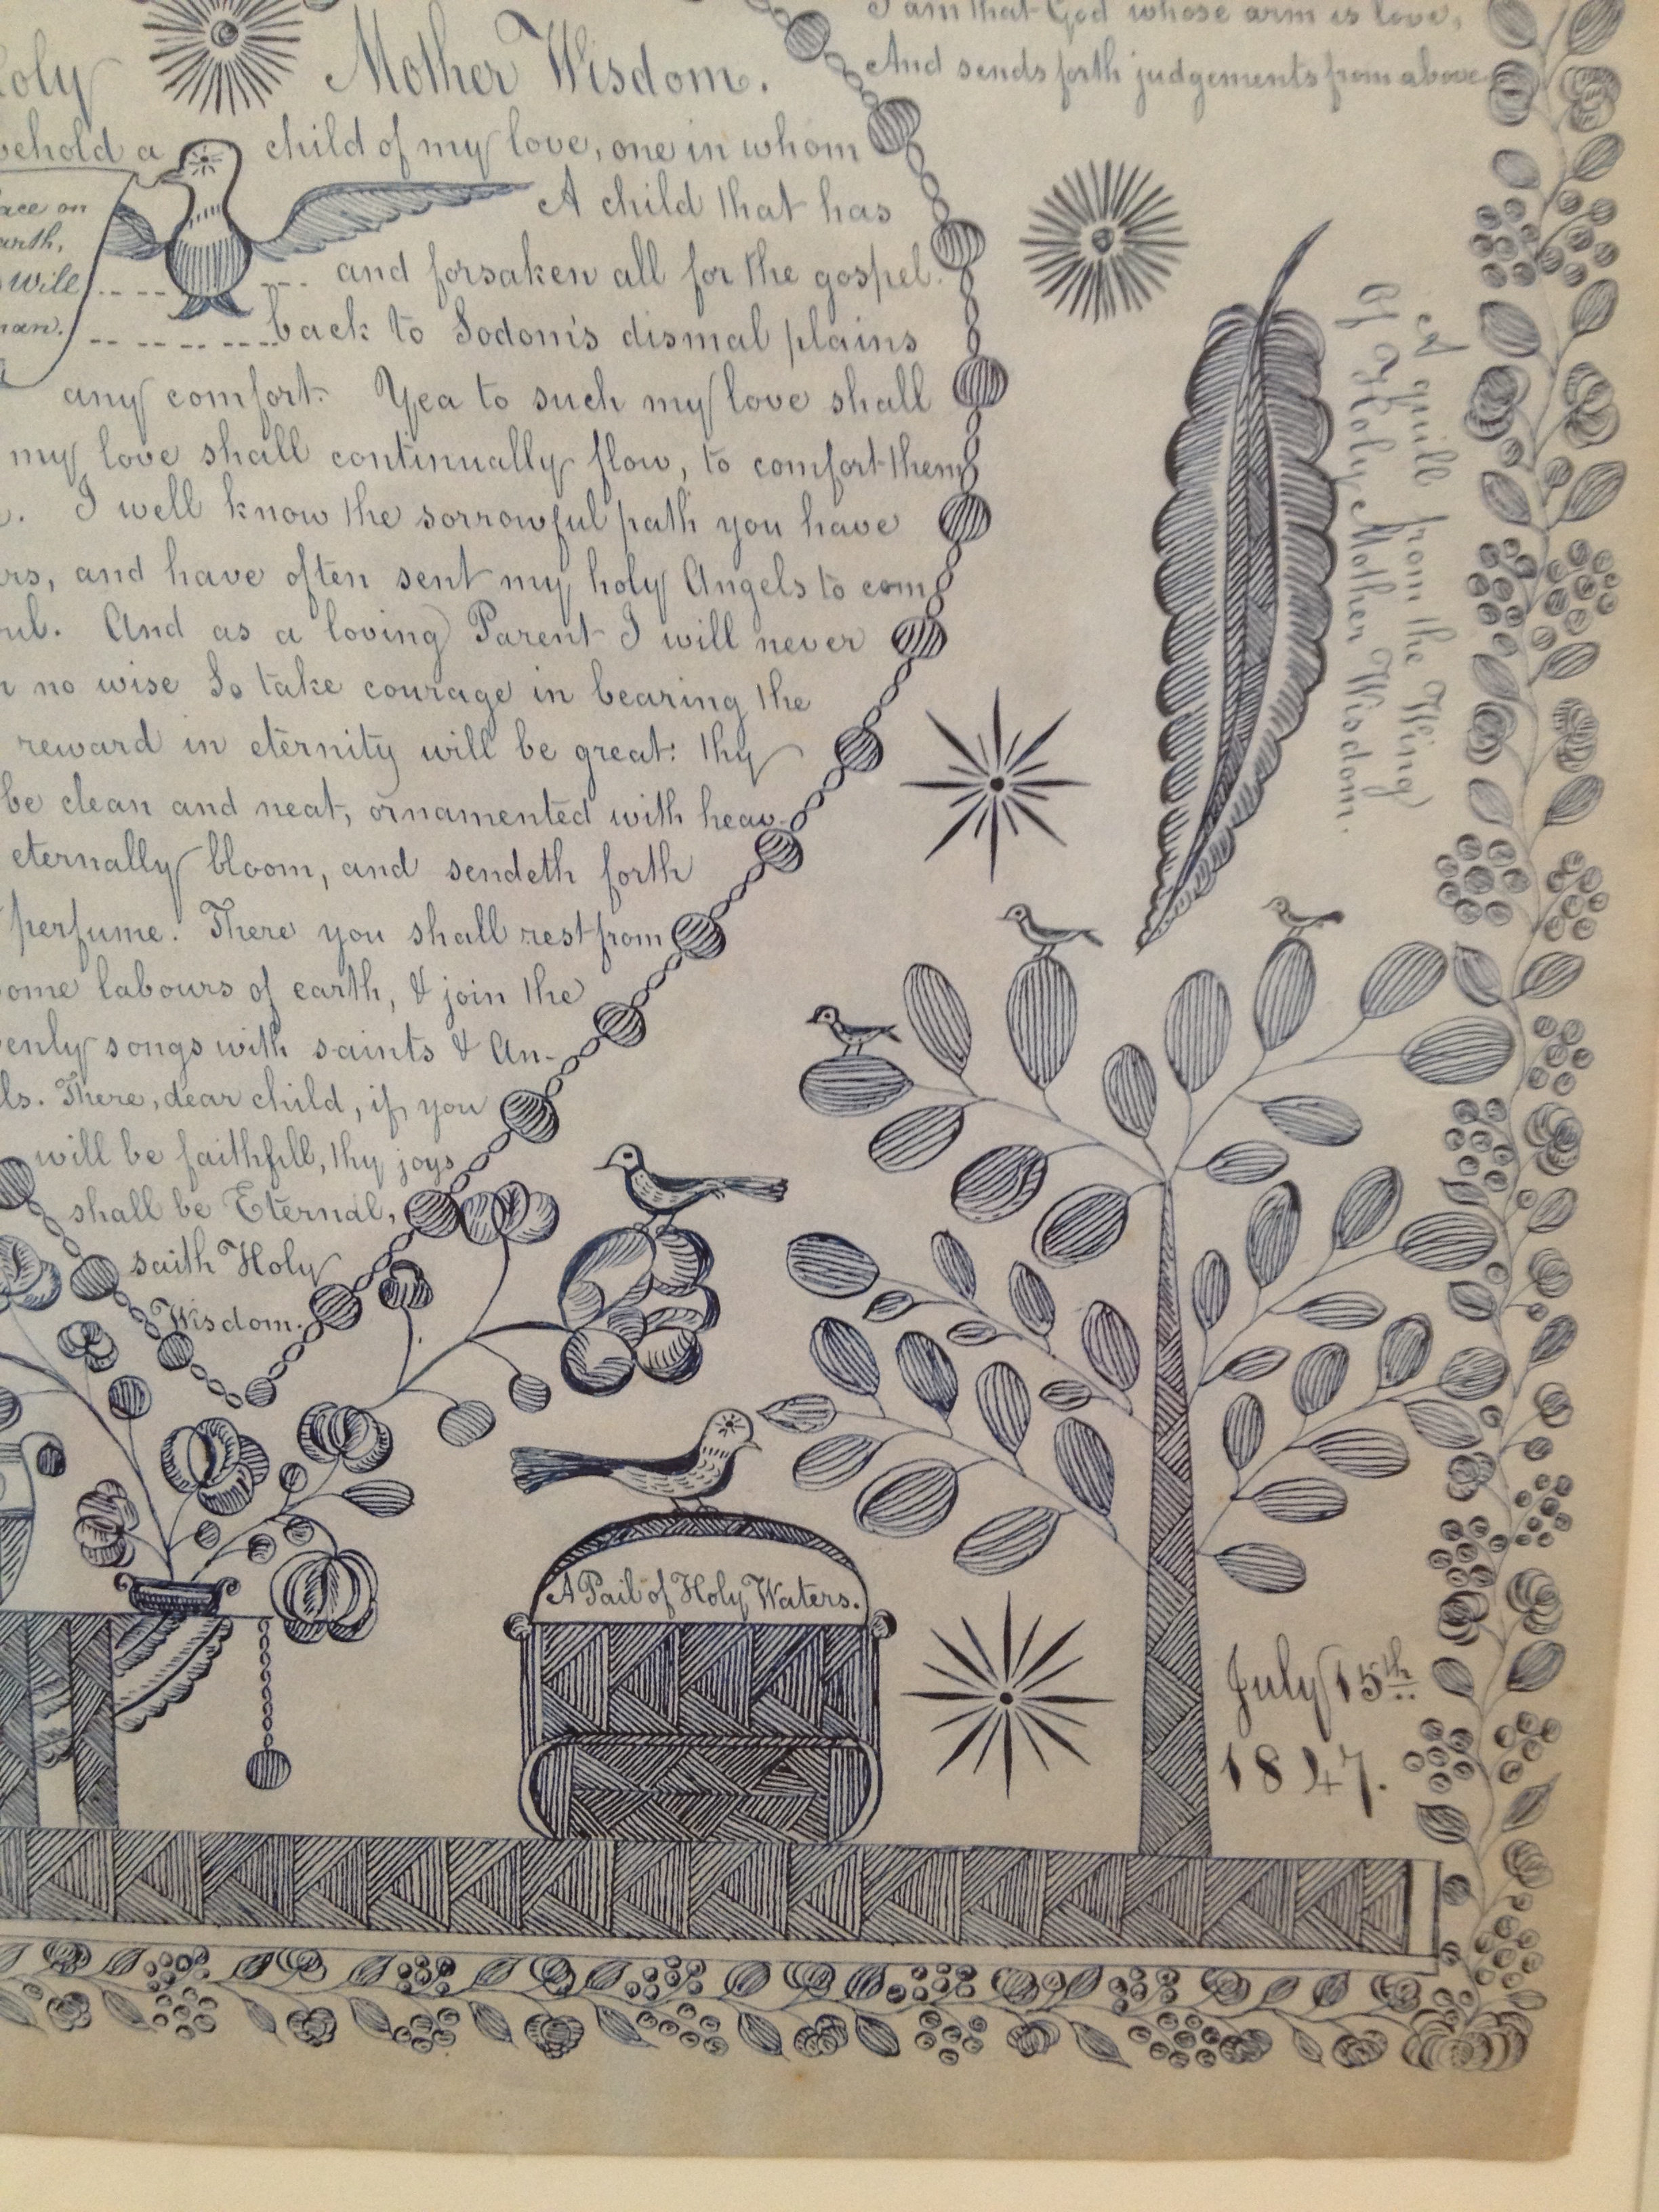 I am that God whose arm is love,
And sends forth judgements from above
Holy Mother Wisdom.
behold a child of my love, one in whom
A child that has
and forsaken all for the gospel.
back to Sodom's dismal plains
any comfort. Yea to such my love shall
my love shall continually flow, to comfort them
I well know the sorrowful path you have
and have often sent my holy Angels to com
And as a loving Parent I will never
no wise So take courage in bearing the
reward in eternity will be great: thy
be clean and neat, ornamented with heav-
eternally bloom, and sendeth forth
perfume. There you shall rest from
ome labours of earth, & join the
enly songs with saints & An-
ls. There, dear child, if you
will be faithfull, thy joys
shall be Eternal,
saith Holy
Wisdom.
ace on
arth,
Will
man.
A quill from the Wing
Of Holy Mother Wisdom.
A Pail of Holy Waters.
July 15th
1847.